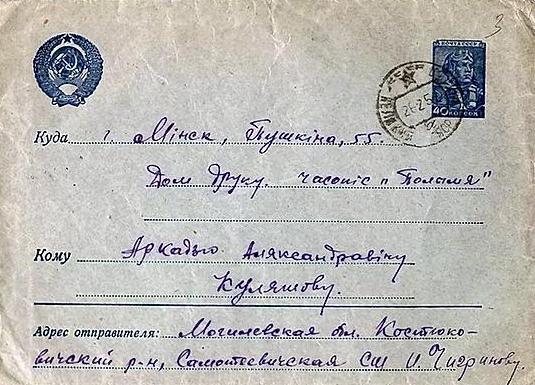 3
ПОЧТА СССР
40 КОПЕЕК
Куда г. Мінск, Пушкіна, 55.
Дом Друку. часопіс „Полымя"
Кому Аркадзю Аляксандравічу
Куляшову.
Адрес отправителя: Могилевская обл. Костюко-
вичский р-н, Самотевичская СШ И. Чигринову.